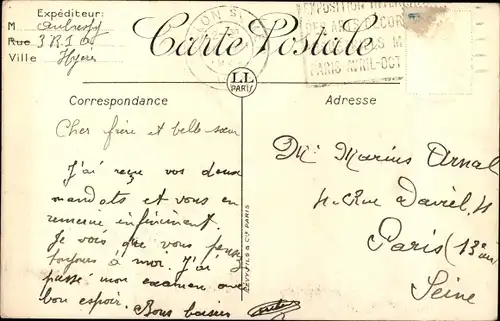 Expéditeur:
M
Rue 3 R.I.a.
Ville Hyères
Carte Postale
EXPOSITION INTERN
DES ARTS DÉCOR
PARIS AVRIL-OCT
LL
PARIS
Correspondance
Adresse
Cher frère et belle sœur
J'ai reçu vos deux
mandats et vous en
remercie infiniment.
Je vois que vous pensez
toujours à moi. J'ai
passé mon examen avec
bon espoir. Bons baisers
LEVY FILS & Cie PARIS
Mr Marius Arnal
4 Rue Daviel 4
Paris (13em)
Seine